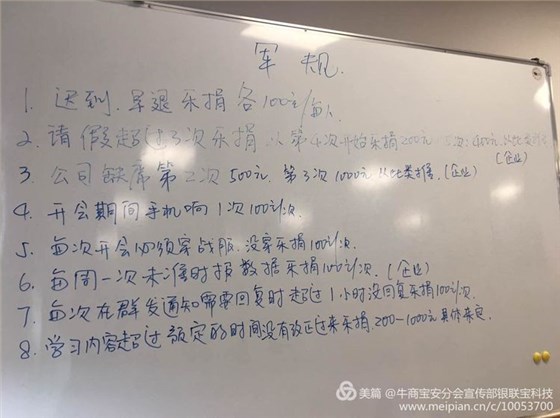 军规
1. 迟到.早退乐捐各100元/每人
2. 请假超过3次乐捐,从第4次开始乐捐200元
3. 公司缺席第二次500元.第3次1000元以此类推.(企业)
(企业)
4. 开会期间手机响1次100元/次
5. 每次开会必须穿战服.没穿乐捐100元/次.
6. 每周一次未准时报数据乐捐100元/次.(企业)
7. 每次在群发通知需要回复时超过1小时没回复乐捐100元/次.
8. 学习内容超过规定的时间没有改正过来乐捐.200-1000元具体来定.
美篇 @牛商宝安分会宣传部银联宝科技
www.meipian.cn/c/10053700